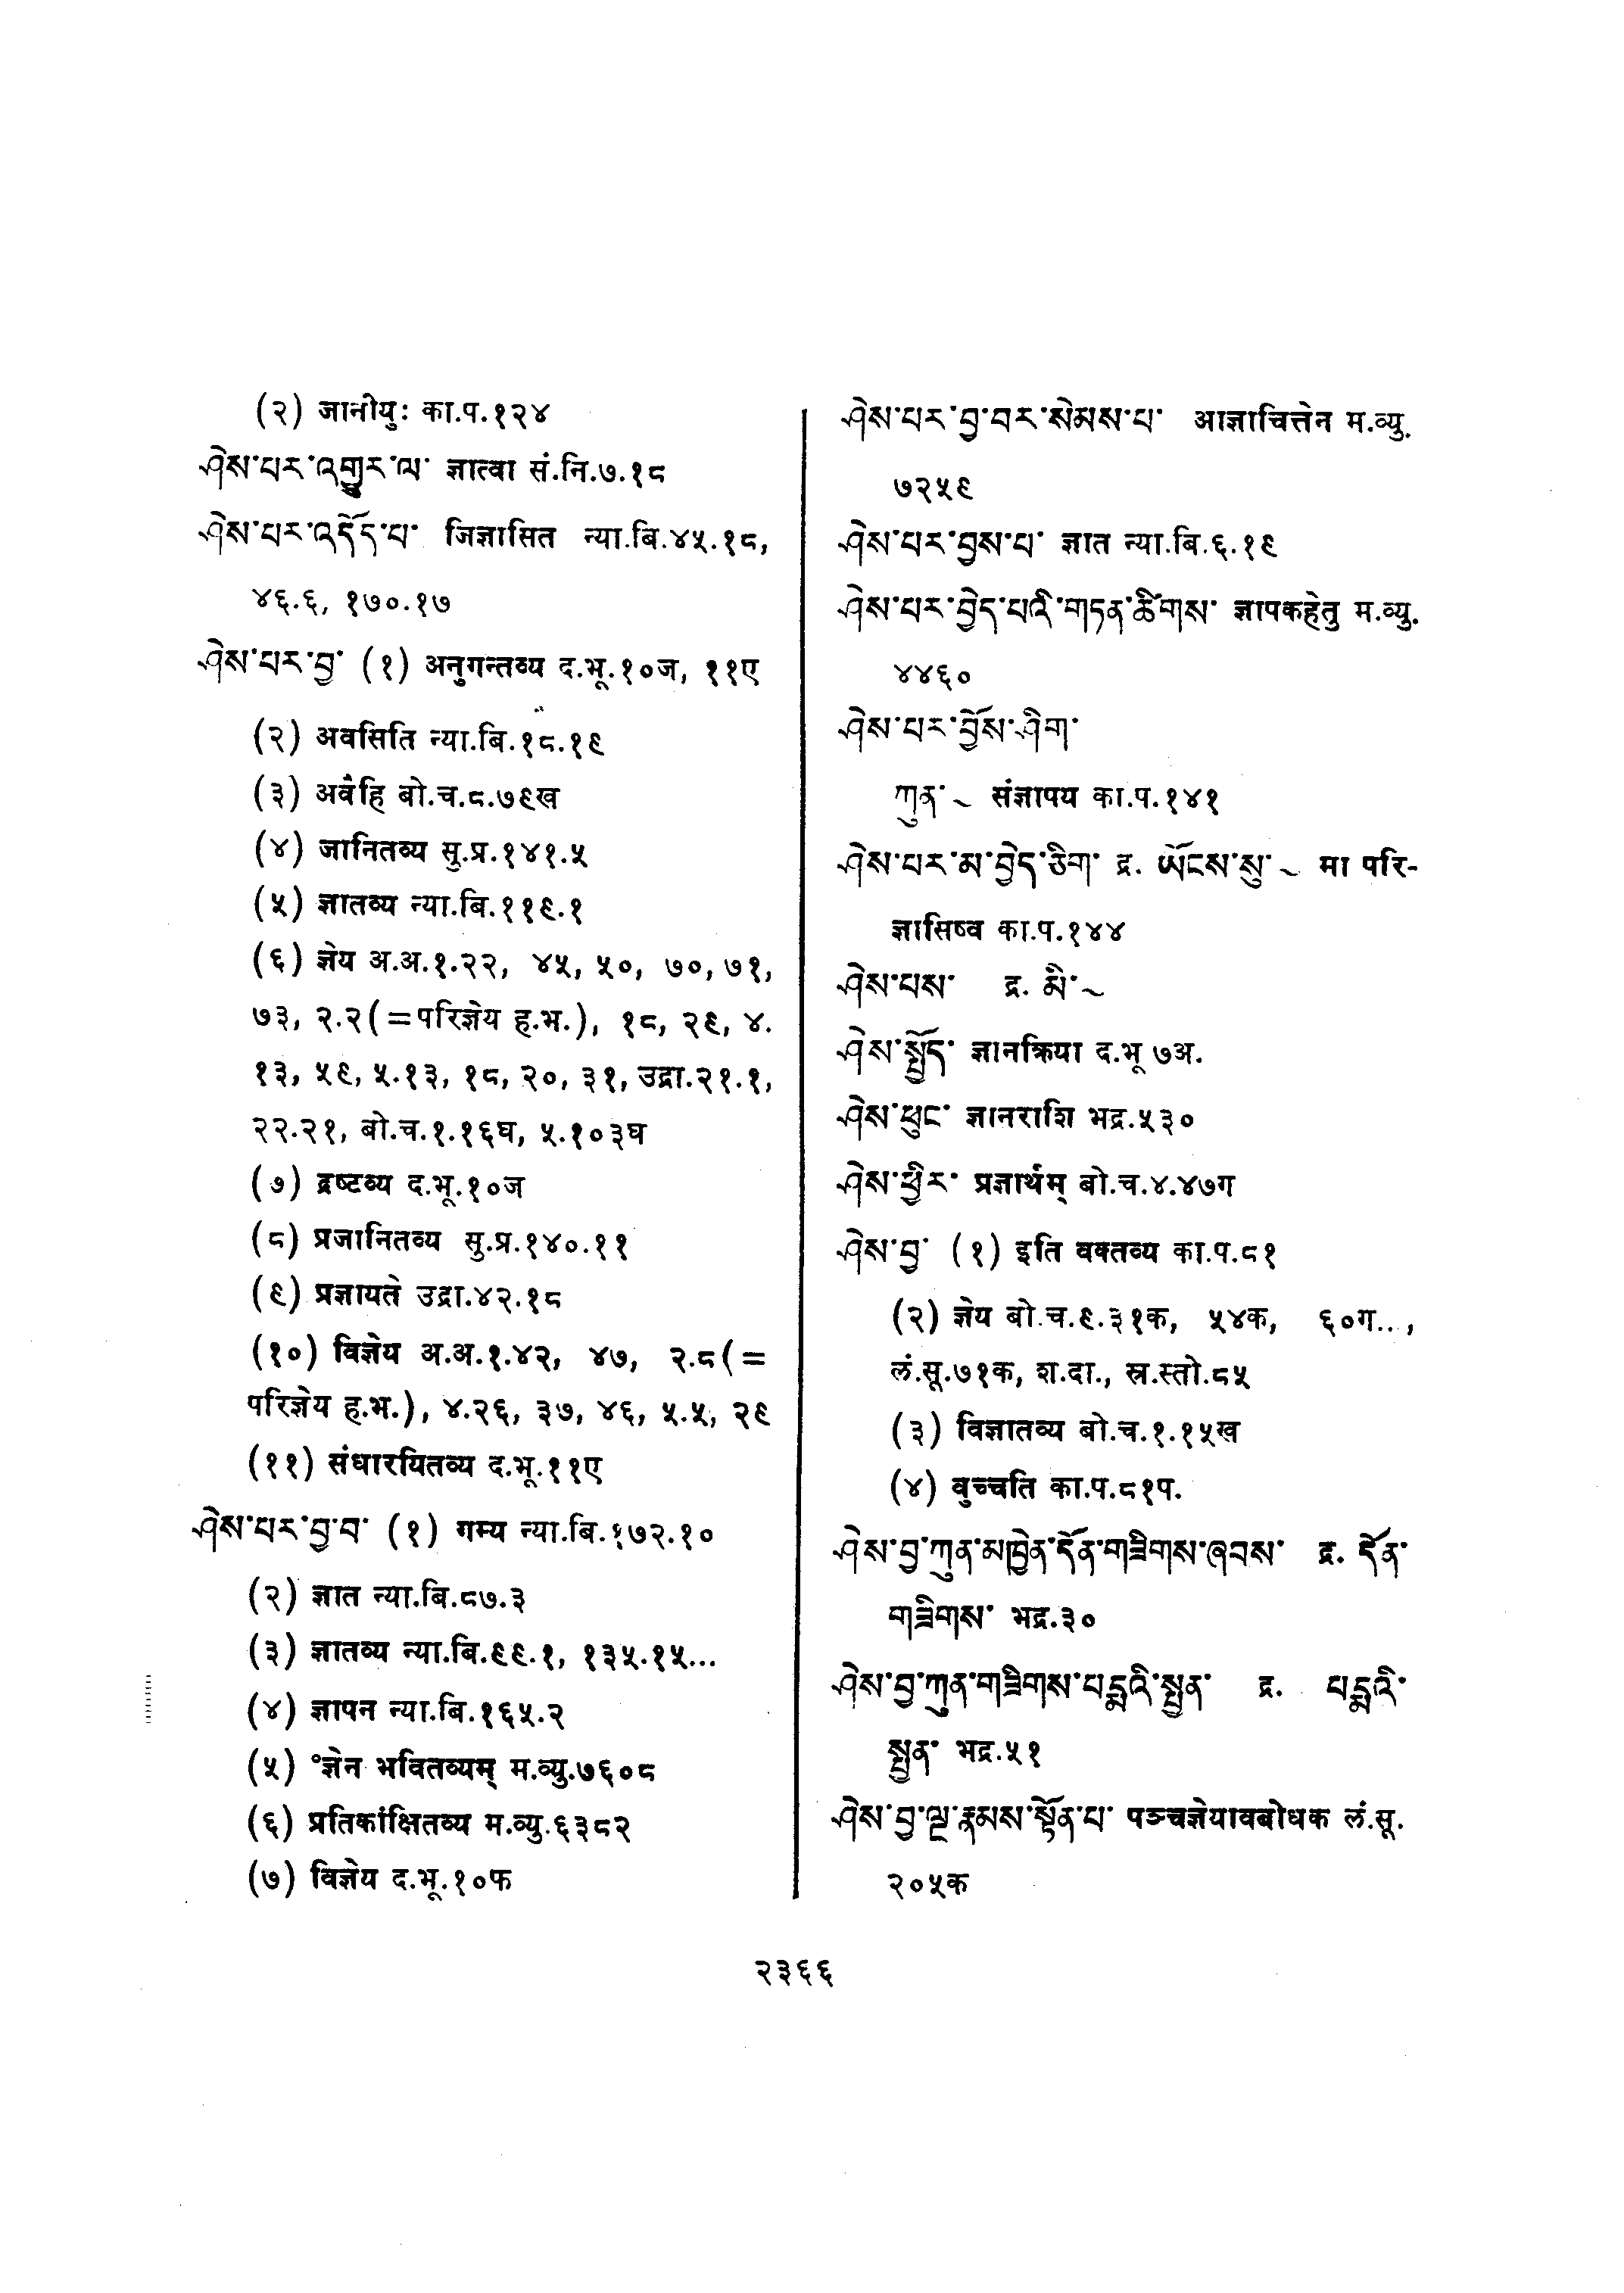 (२) जानीयुः का.प.१२४
ཤེས་པར་འགྱུར་ལ་ ज्ञात्वा सं.नि.७.१८
ཤེས་པར་འདོད་པ་ जिज्ञासित न्या.बि.४५.१८,
४६.६, १७०.१७
ཤེས་པར་བྱ་ (१) अनुगन्तव्य द.भू.१०ज, ११ए
(२) अवसिति न्या.बि.१८.१९
(३) अवैहि बो.च.८.७९ख
(४) जानितव्य सु.प्र.१४१.५
(५) ज्ञातव्य न्या.बि.११९.१
(६) ज्ञेय अ.अ.१.२२, ४५, ५०, ७०, ७१,
७३, २.२(=परिज्ञेय ह.भ.), १८, २९, ४.
१३, ५९, ५.१३, १८, २०, ३१, उद्रा.२१.१,
२२.२१, बो.च.१.१६घ, ५.१०३घ
(७) द्रष्टव्य द.भू.१०ज
(८) प्रजानितव्य सु.प्र.१४०.११
(९) प्रज्ञायते उद्रा.४२.१८
(१०) विज्ञेय अ.अ.१.४२, ४७, २.८(=
परिज्ञेय ह.भ.), ४.२६, ३७, ४६, ५.५, २९
(११) संधारयितव्य द.भू.११ए
ཤེས་པར་བྱ་བ་ (१) गम्य न्या.बि.१७२.१०
(२) ज्ञात न्या.बि.८७.३
(३) ज्ञातव्य न्या.बि.९९.१, १३५.१५...
(४) ज्ञापन न्या.बि.१६५.२
(५) °ज्ञेन भवितव्यम् म.व्यु.७६०८
(६) प्रतिकांक्षितव्य म.व्यु.६३८२
(७) विज्ञेय द.भू.१०फ
ཤེས་པར་བྱ་བར་སེམས་པ་ आज्ञाचित्तेन म.व्यु.
७२५९
ཤེས་པར་བྱས་པ་ ज्ञात न्या.बि.६.१९
ཤེས་པར་བྱེད་པའི་གཏན་ཚིགས་ ज्ञापकहेतु म.व्यु.
४४६०
ཤེས་པར་བྱོས་ཤིག་
ཀུན་ ~ संज्ञापय का.प.१४१
ཤེས་པར་མ་བྱེད་ཅིག་ द्र. ཡོངས་སུ་ ~ मा परि-
ज्ञासिष्व का.प.१४४
ཤེས་པས་ द्र. མི་ ~
ཤེས་སྤྱོད་ ज्ञानक्रिया द.भू ७अ.
ཤེས་ཕུང་ ज्ञानराशि भद्र.५३०
ཤེས་ཕྱིར་ प्रज्ञार्थम् बो.च.४.४७ग
ཤེས་བྱ་ (१) इति वक्तव्य का.प.८१
(२) ज्ञेय बो.च.९.३१क, ५४क, ६०ग...,
लं.सू.७१क, श.दा., स्र.स्तो.८५
(३) विज्ञातव्य बो.च.१.१५ख
(४) वुच्चति का.प.८१प.
ཤེས་བྱ་ཀུན་མཁྱེན་དོན་གཟིགས་ཞབས་ द्र. དོན་
གཟིགས་ भद्र.३०
ཤེས་བྱ་ཀུན་གཟིགས་པདྨའི་སྤྱན་ द्र. པདྨའི་
སྤྱན་ भद्र.५१
ཤེས་བྱ་ལྔ་རྣམས་སྟོན་པ་ पञ्चज्ञेयावबोधक लं.सू.
२०५क
२३६६